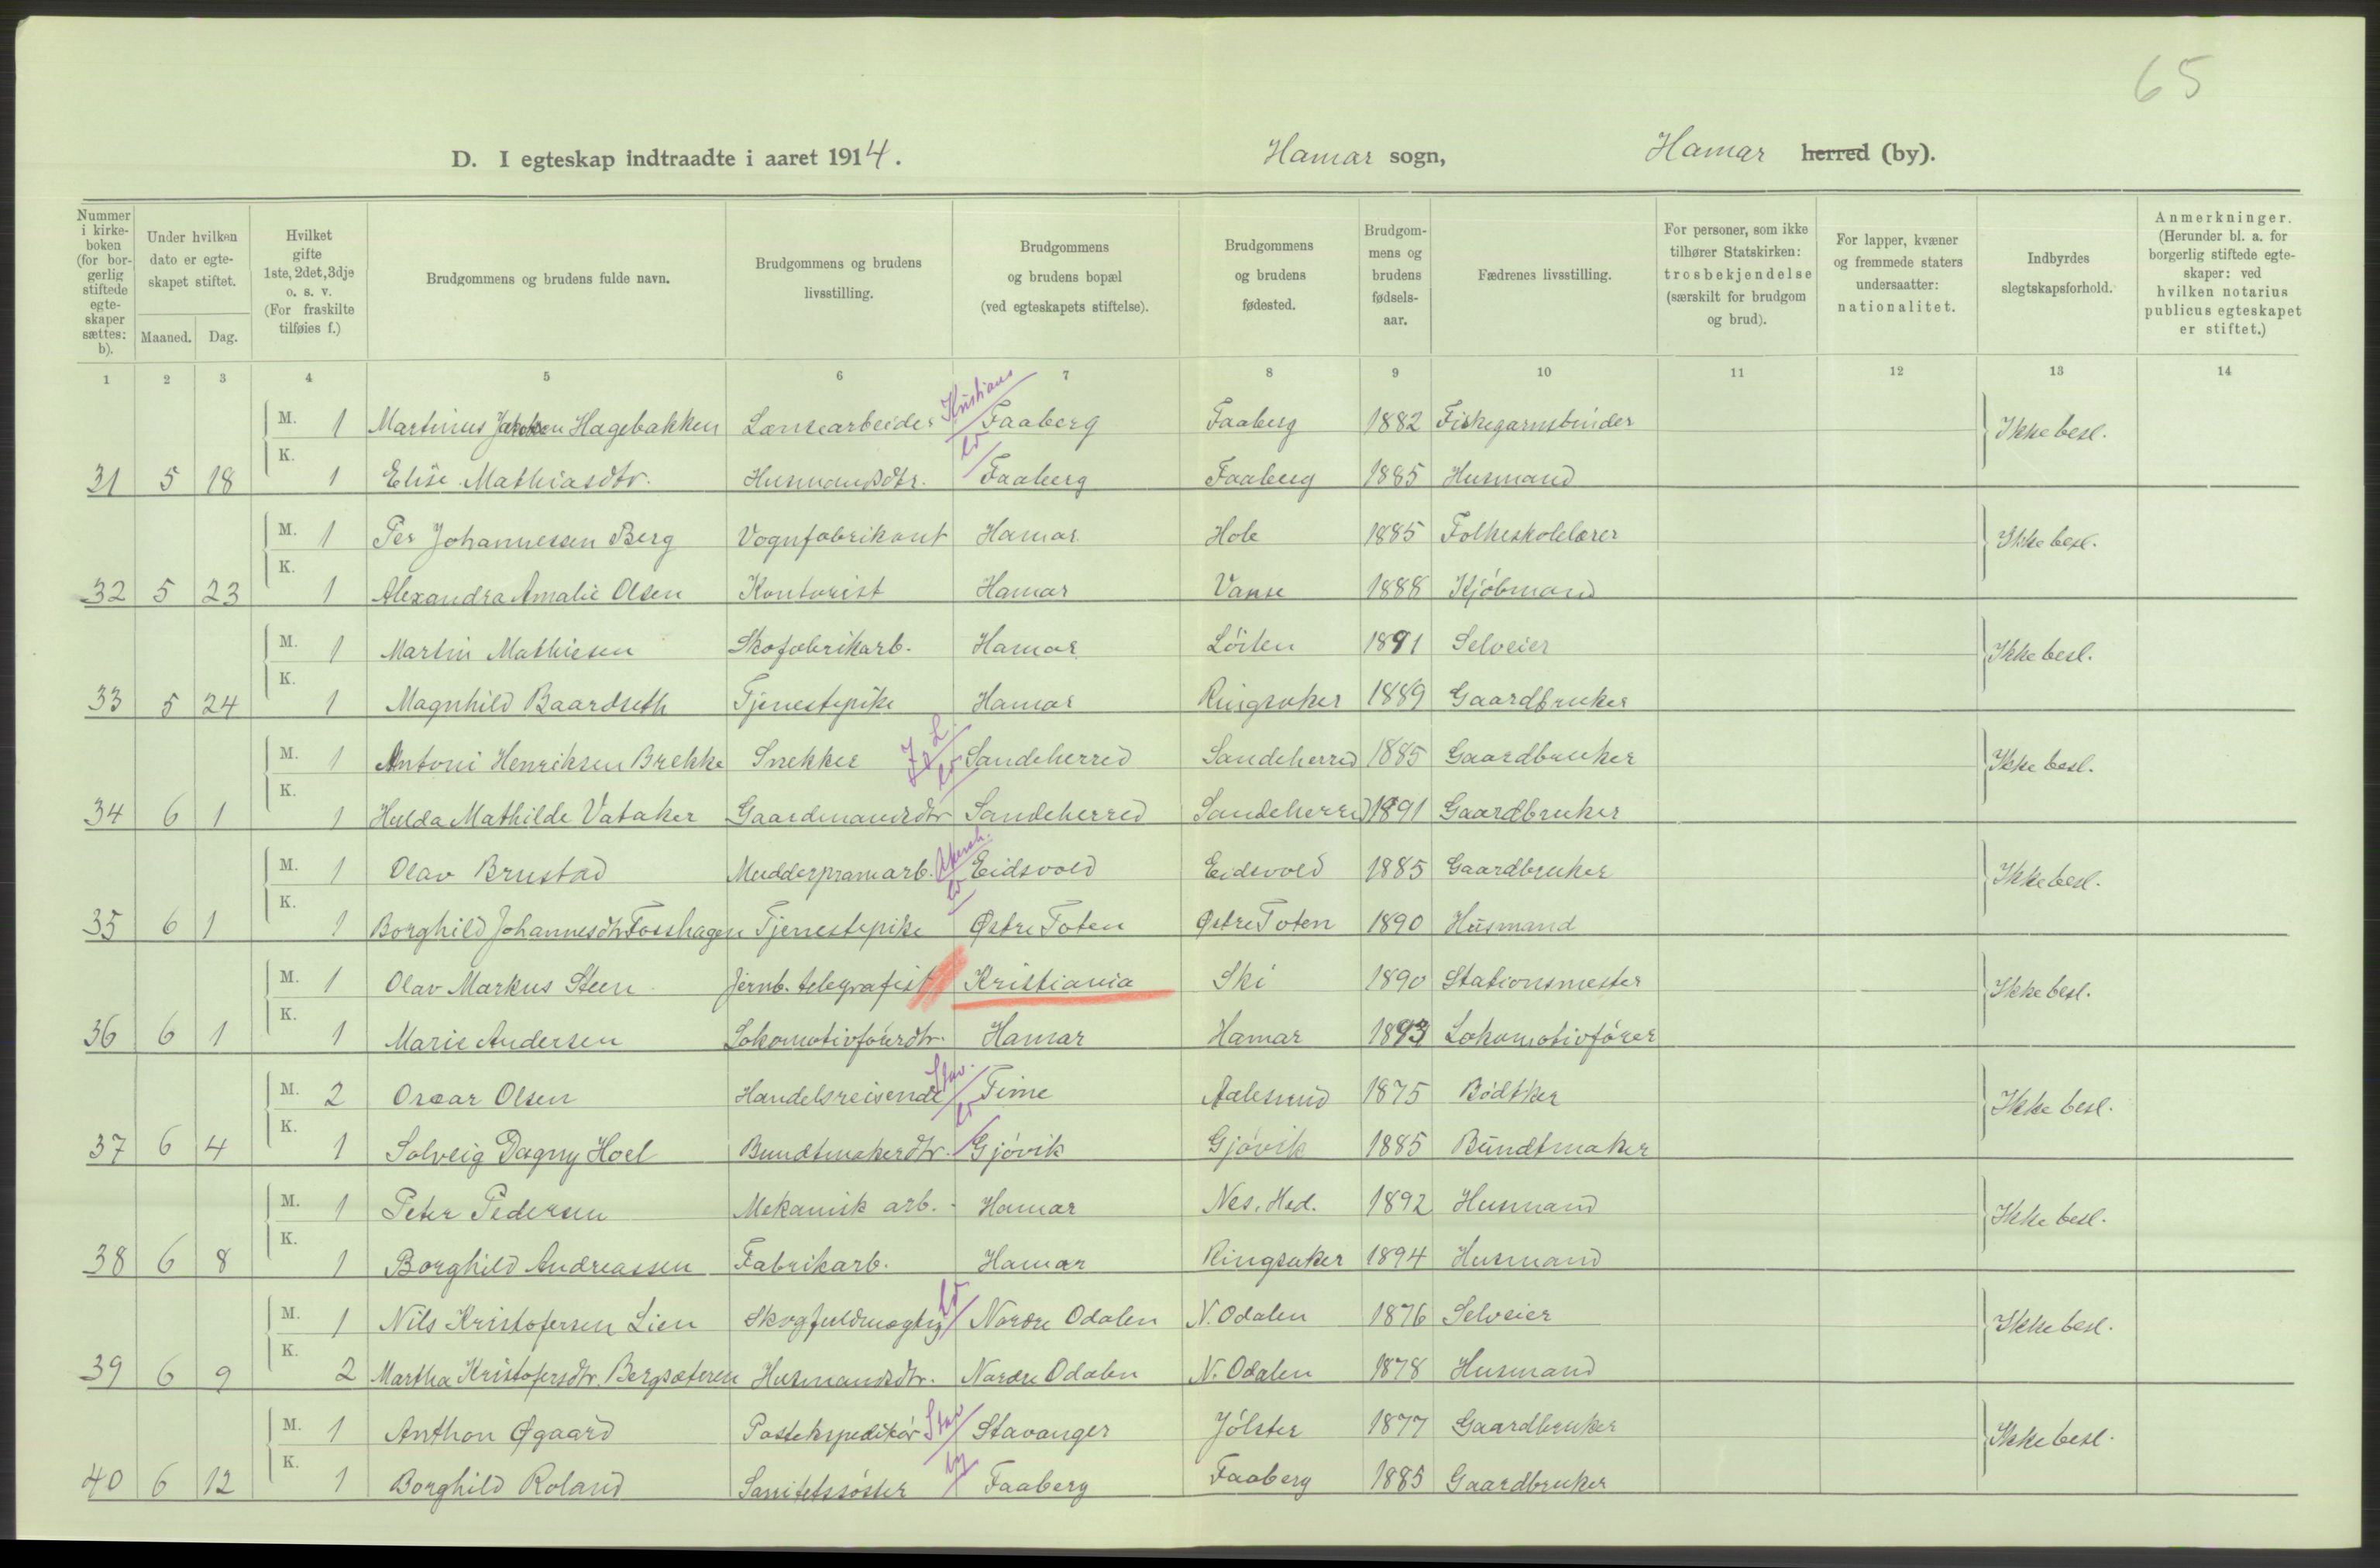 65
D. I egteskap indtraadte i aaret 1914. Hamar sogn, Hamar herred (by).
Nummer i kirke-boken (for bor-gerlig stiftede egte-skaper sættes: b).
Under hvilken dato er egte-skapet stiftet.
Maaned. Dag.
Hvilket gifte 1ste, 2det, 3dje o. s. v. (For fraskilte tilføies f.)
Brudgommens og brudens fulde navn.
Brudgommens og brudens livsstilling.
Brudgommens og brudens bopæl (ved egteskapets stiftelse).
Brudgommens og brudens fødested.
Brudgom-mens og brudens fødsels-aar.
Fædrenes livsstilling.
For personer, som ikke tilhører Statskirken: trosbekjendelse (særskilt for brudgom og brud).
For lapper, kvæner og fremmede staters undersaatter: nationalitet.
Indbyrdes slegtskapsforhold.
Anmerkninger. (Herunder bl. a. for borgerlig stiftede egte-skaper: ved hvilken notarius publicus egteskapet er stiftet.)
1 2 3 4 5 6 7 8 9 10 11 12 13 14
M. 1 Martinus Jakobsen Hagebakken Lænsearbeider Kristians Faaberg Faaberg 1882 Fiskegarnsbinder Ikke besl.
31 5 18 K. 1 Elise Mathiasdtr. Husmandsdtr. Faaberg Faaberg 1885 Husmand
M. 1 Per Johannessen Berg Vognfabrikant Hamar Hole 1885 Folkeskolelærer Ikke besl.
32 5 23 K. 1 Alexandra Amalie Olsen Kontorist Hamar Vanse 1888 Kjøbmand
M. 1 Martin Mathiesen Skofabrikarb. Hamar Löiten 1891 Selveier Ikke besl.
33 5 24 K. 1 Magnhild Baardseth Tjenestepike Hamar Ringsaker 1889 Gaardbruker
M. 1 Antoni Henriksen Brekke Snekker J. L. Sandeherred Sandeherred 1885 Gaardbruker Ikke besl.
34 6 1 K. 1 Hulda Mathilde Vataker Gaardmandsdtr Sandeherred Sandeherred 1891 Gaardbruker
M. 1 Olav Brustad Mudderpramarb. Akersh. Eidsvold Eidsvold 1885 Gaardbruker Ikke besl.
35 6 1 K. 1 Borghild Johannesdtr Fosshagen Tjenestepike Østre Toten Østre Toten 1890 Husmand
M. 1 Olav Markus Steen Jernb. telegrafist Kristiania Ski 1890 Stationsmester Ikke besl.
36 6 1 K. 1 Marie Andersen Lokomotivförerdtr. Hamar Hamar 1893 Lokomotivförer
M. 2 Oscar Olsen Handelsreisende Stav. Time Aalesund 1875 Bödtker Ikke besl.
37 6 4 K. 1 Solveig Dagny Hoel Bundtmakerdtr. Gjövik Gjövik 1885 Bundtmaker
M. 1 Peter Pedersen Mekanisk arb. Hamar Nes. Hed. 1892 Husmand Ikke besl.
38 6 8 K. 1 Borghild Andreassen Fabrikarb. Hamar Ringsaker 1894 Husmand
M. 1 Nils Kristofersen Lien Skogfuldmægtig Nordre Odalen N. Odalen 1876 Selveier Ikke besl.
39 6 9 K. 2 Martha Kristofersdtr. Bergsæteren Husmandsdtr. Nordre Odalen N. Odalen 1878 Husmand
M. 1 Anthon Øgaard Postekspeditör Stav Stavanger Jölster 1877 Gaardbruker Ikke besl.
40 6 12 K. 1 Borghild Roland Sanitetssöster by Faaberg Faaberg 1885 Gaardbruker